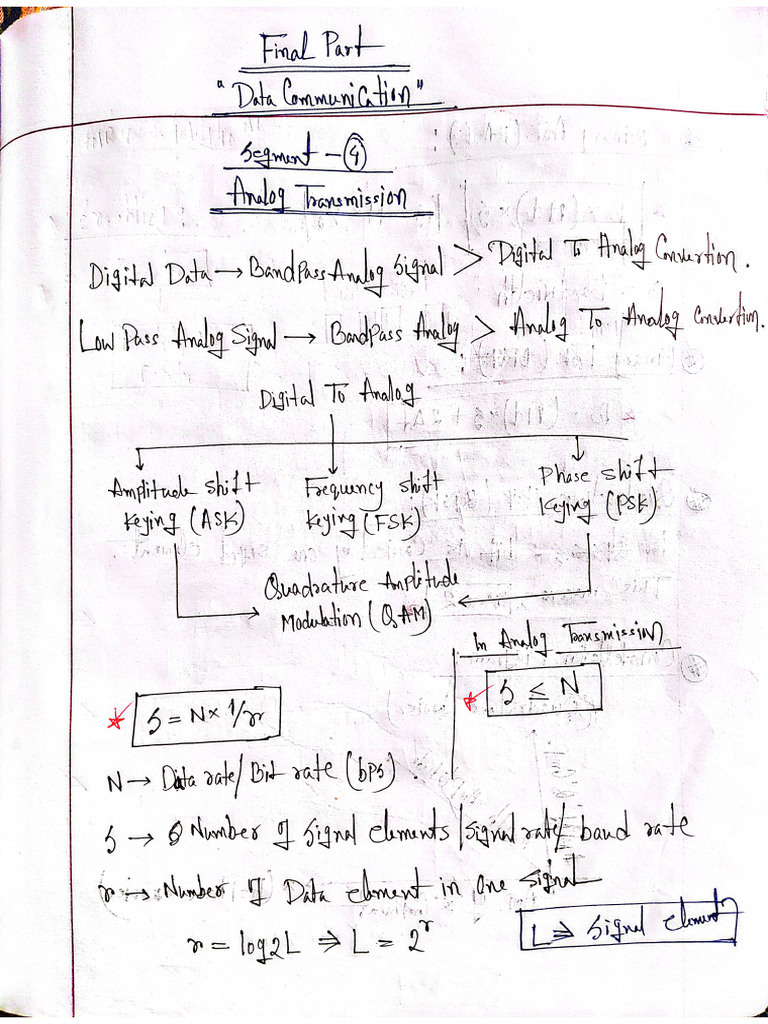 Final Part
"Data Communication"
Segment - 4
Analog Transmission
Digital Data → BandPass Analog Signal > Digital To Analog Convertion.
Low Pass Analog Signal → BandPass Analog > Analog To Analog Convertion.
Digital To Analog
Amplitude Shift Keying (ASK)
Frequency Shift Keying (FSK)
Phase Shift Keying (PSK)
Quadrature Amplitude
Modulation (QAM)
In Analog Transmission
S ≤ N
S = N × 1/r
N → Data rate/Bit rate (bps).
S → Number of Signal elements/signal rate/baud rate
r → Number of Data element in one signal
r = log2L ⇒ L = 2^r
L ⇒ Signal element